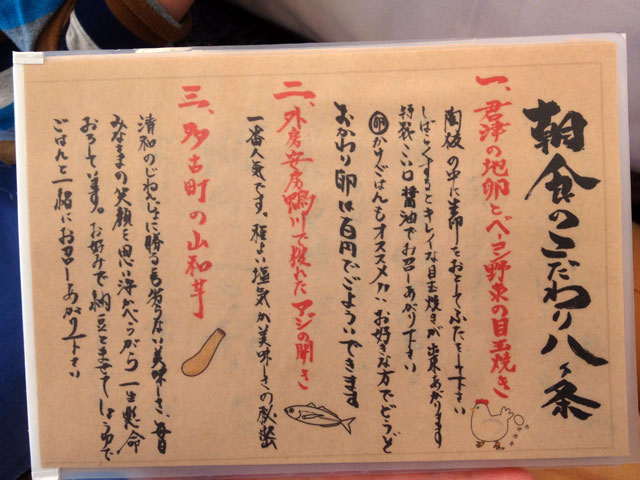 朝食のこだわり八ヶ条
一、君津の地卵とベーコン野菜の目玉焼き
陶板の中に生卵をおとしてふたをして下さい
しばらくするとキレイな目玉焼きが出来あがります
特殊こい口醤油でお召しあがり下さい
卵かけごはんもオススメ!! お好きな方でどうぞ
おかわり卵は百円でごよういできます
二、外房安房鴨川で獲れたアジの開き
一番人気です。程よい塩気が美味しさの秘密
三、多古町の山和芋
清和のじねんじょに勝るとも劣らない美味しさ、毎日
みなさまの笑顔を思い浮かべながら一生懸命
おろしています。お好みで納豆とまぜてしょうゆで
ごはんと一緒にお召しあがり下さい